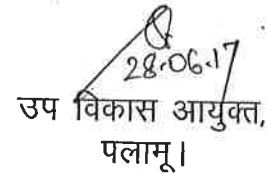 28.06.17
उप विकास आयुक्त,
पलामू।